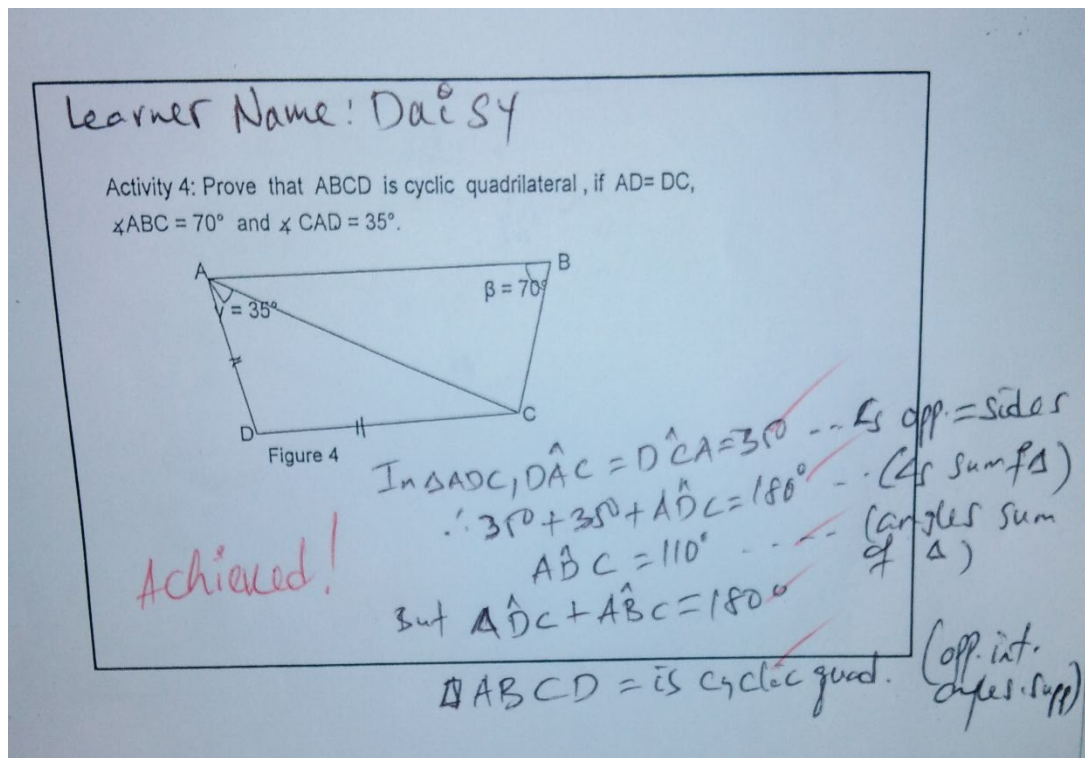 Learner Name: Daisy
Activity 4: Prove that ABCD is cyclic quadrilateral , if AD= DC,
∡ABC = 70° and ∡ CAD = 35°.
A
B
β = 70°
γ = 35°
D
C
Figure 4
In ΔADC, DÂC = DĈA = 35° --- ∠s opp. = sides
∴ 35° + 35° + AD̂C = 180° - - (∠s sum of Δ)
AD̂C = 110° - - - - - (angles sum of Δ)
But AD̂C + AB̂C = 180°
ABCD = is cyclic quad. (opp. int. angles. supp)
Achieved!